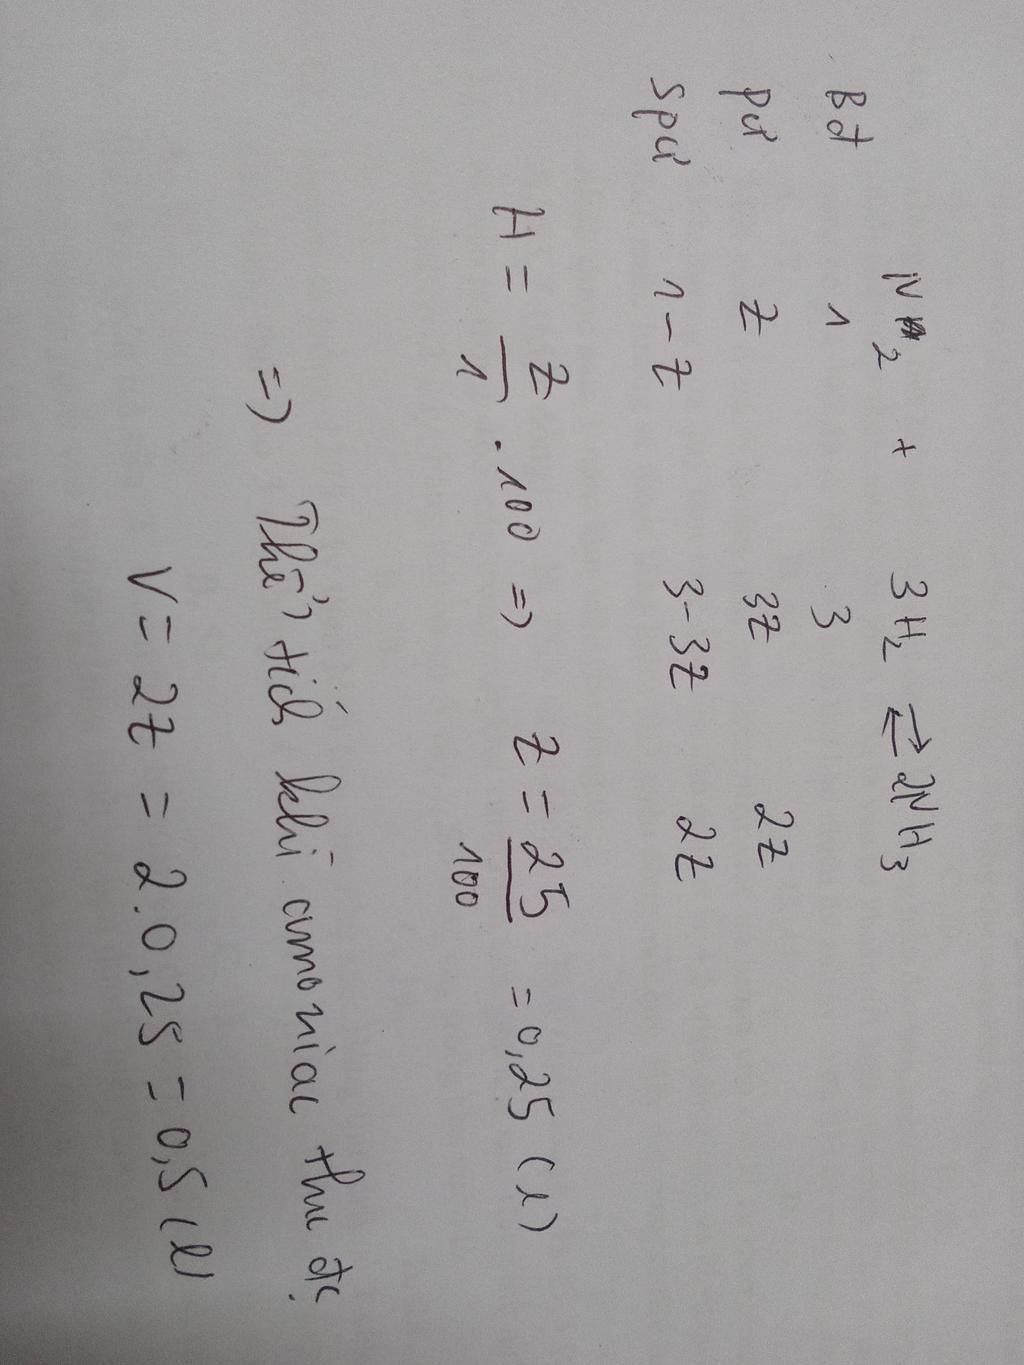 N2 + 3H2 ⇌ 2NH3
Bđ 1 3
pứ z 3z 2z
Spứ 1-z 3-3z 2z
H = z/1 . 100 => z = 25/100 = 0,25 (l)
=> Thể tích khí amoniac thu đc
V = 2z = 2.0,25 = 0,5 (l)